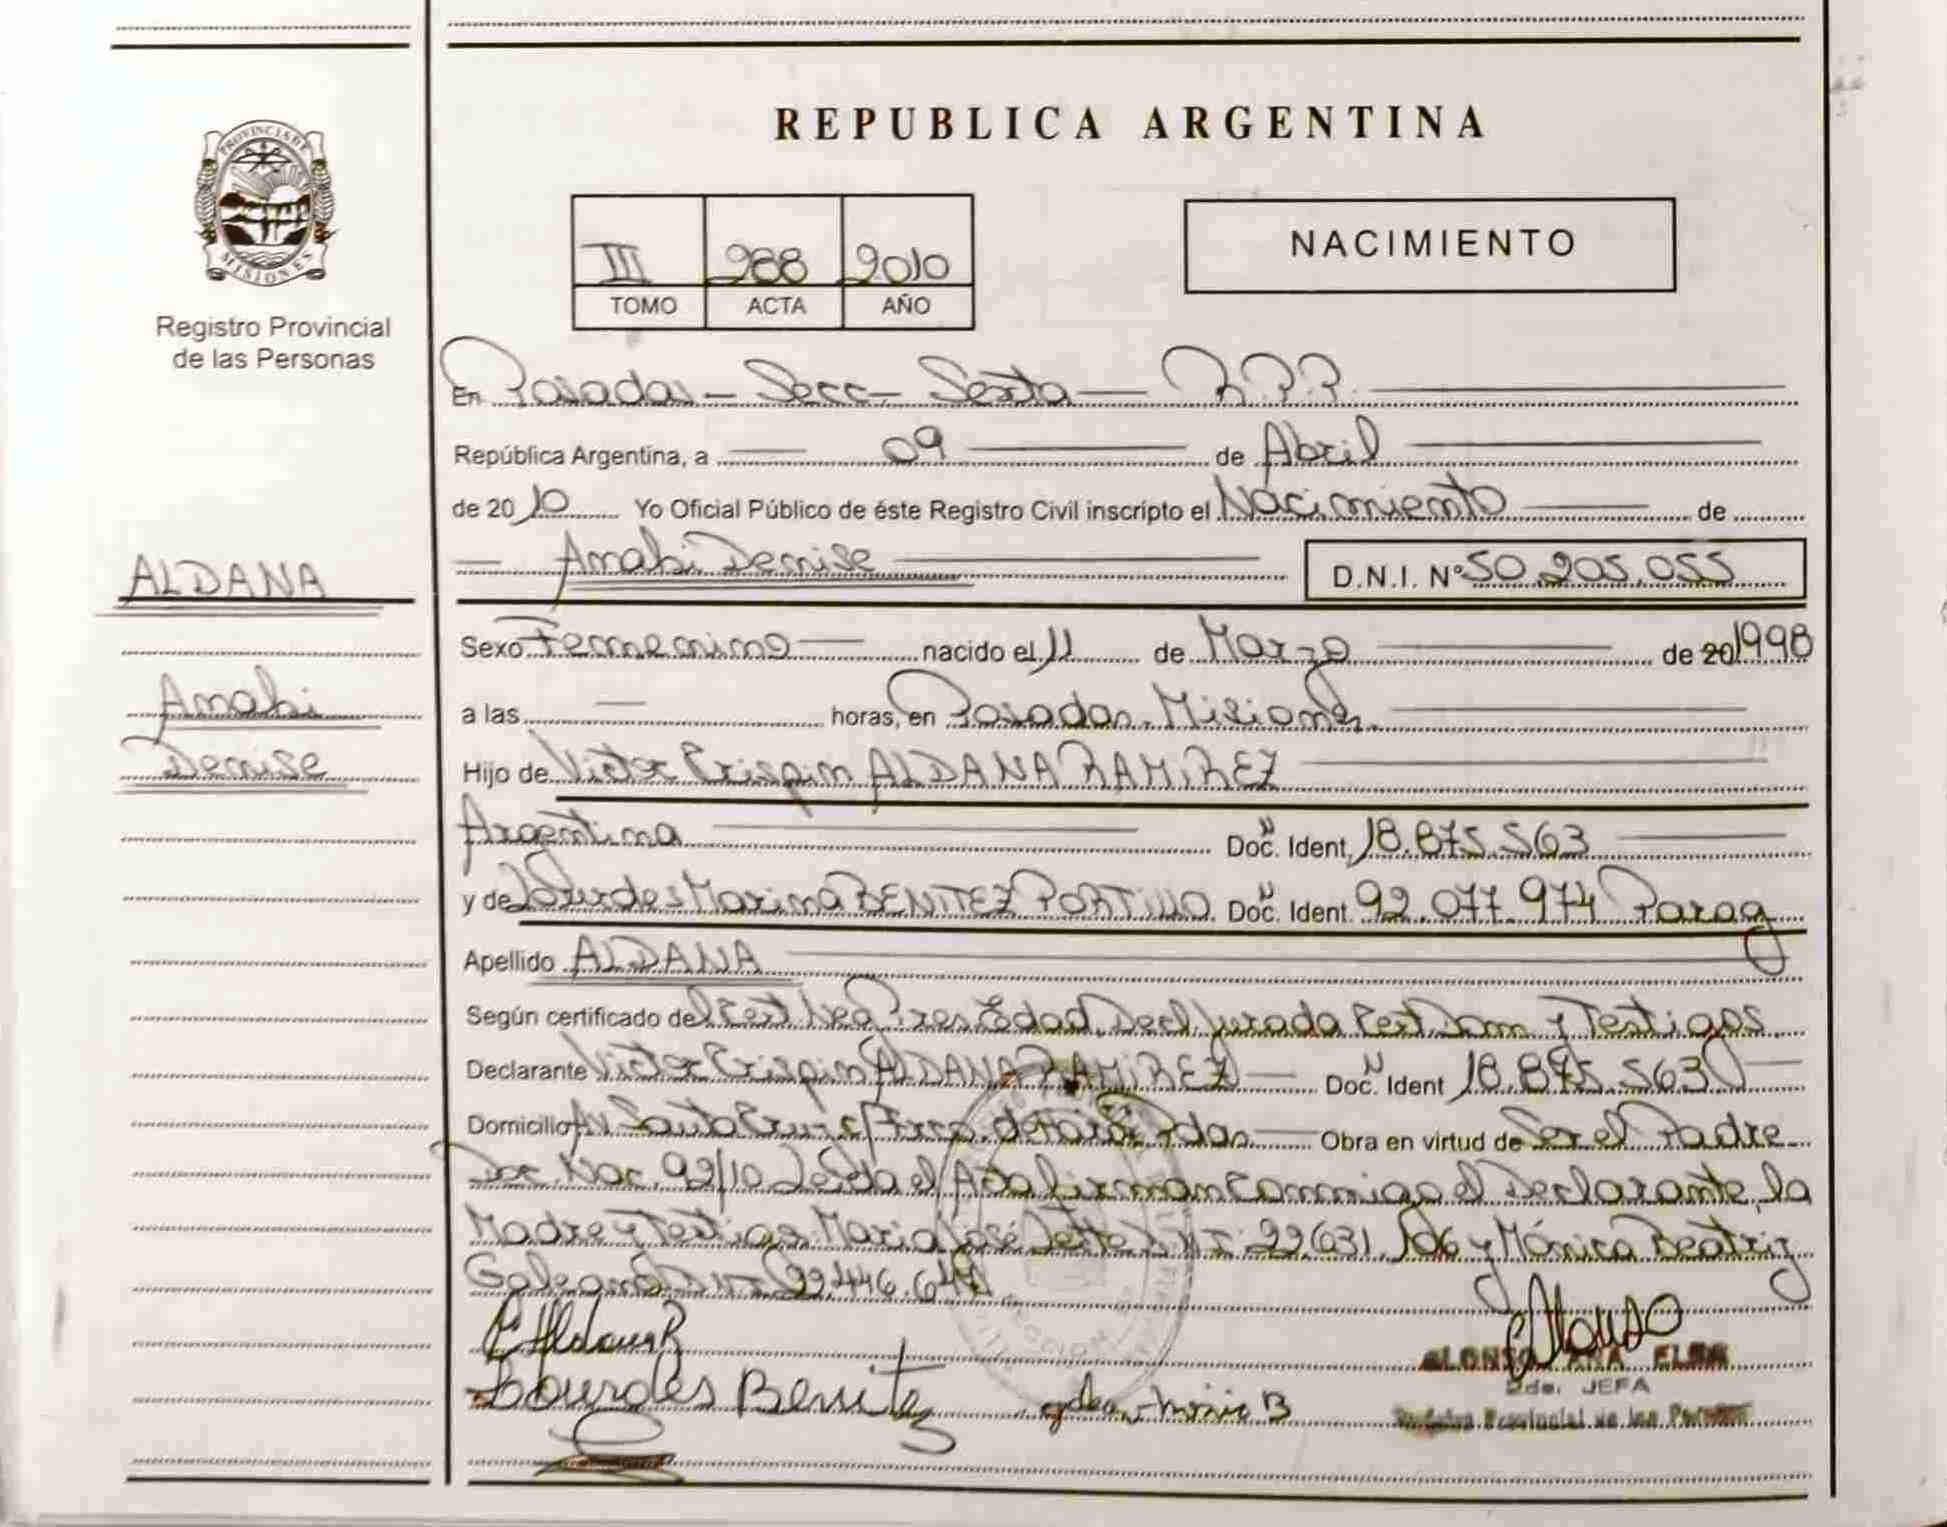 PROVINCIA DE
MISIONES
Registro Provincial
de las Personas
ALDANA
Anahi
Denise
REPUBLICA ARGENTINA
III 288 2010
TOMO ACTA AÑO
NACIMIENTO
En Posadas - Secc - Sexta - R.P.P.
República Argentina, a 09 de Abril
de 2010 Yo Oficial Público de éste Registro Civil inscripto el Nacimiento de
Anahi Denise D.N.I. Nº 50.205.055
Sexo Femenino nacido el 11 de Marzo de 20 1998
a las — horas, en Posadas. Misiones.
Hijo de Victor Crispin ALDANA RAMIREZ
Argentina Doc. Ident. 18.875.563
y de Lourdes Marina BENITEZ PORTILLO Doc. Ident. 92.077.974 Parag
Apellido ALDANA
Según certificado del Cert Neg Pres Edad Decl Jurada Cert Dom y Testigos
Declarante Victor Crispin ALDANA RAMIREZ Doc. Ident 18.875.563
Domicilio Av Santa Cruz Pdas Obra en virtud de Ser el Padre
Nac. 92/10 Leida el Acta firman conmigo el Declarante, la
Madre y Testigos Maria José 22.631. y Mónica Beatriz
Galeano
C Aldana R
Lourdes Benitez
B
Alonso
ALONSO ANA ELBA
2da. JEFA
Registro Provincial de las Personas